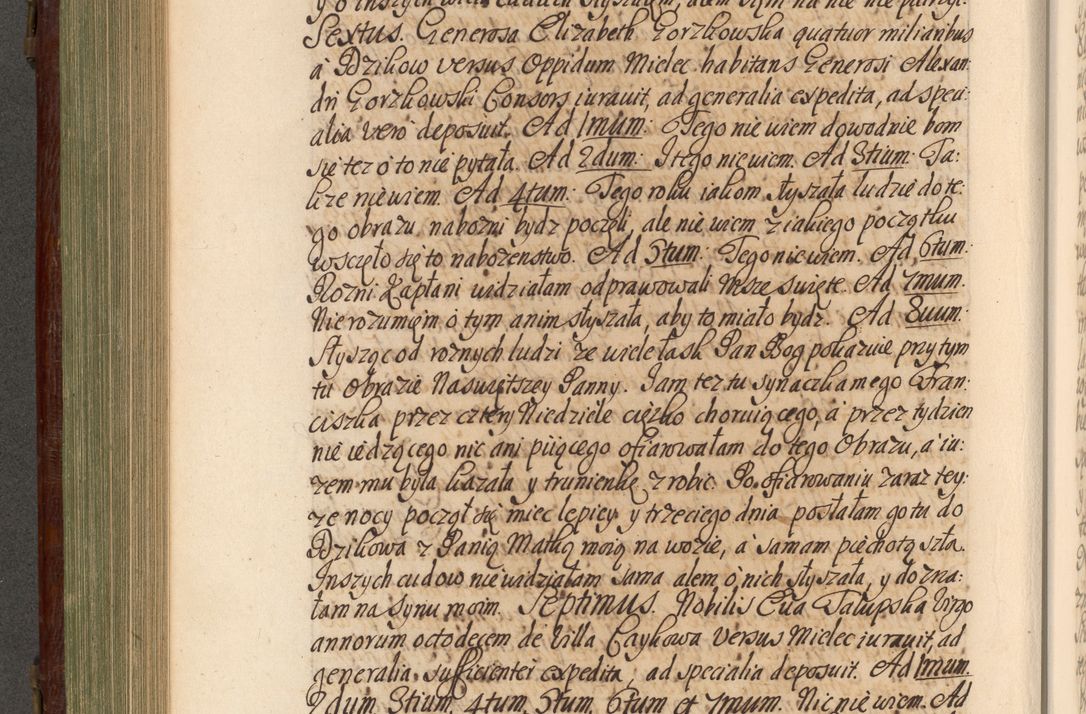 y o inszych wielu cudach słyszałem, alem szym na nie nie patrzył.
Sextus. Generosa Elizabeth Gorzkowska quatuor miliaribus
a Dzikow versus Oppidum Mielec habitans Generosi Alexan:
dri Gorzkowski Consors iurauit, ad generalia expedita, ad speci:
alia vero deposuit. Ad 1mum: Tego nie wiem dowodnie bom
się tez o to nie pytała. Ad 2dum: I tego nie wiem. Ad 3tium: Ta:
kze nie wiem. Ad 4tum: Tego roku iakom słyszała ludzie do te:
go obrazu nabozni bydz poczęli, ale nie wiem z iakiego początku
wsczęło się to nabozenstwo. Ad 5tum: Tego nie wiem. Ad 6tum:
Rozni Kapłani widziałam odprawowali Msze święte. Ad 7mum.
Nierozumięm o tym anim słyszała, aby to miało bydz. Ad 8uum:
Słysząc od roznych ludzi ze wiele łask Pan Bog pokazuie przy tym
tu Obrazie Naswiętszey Panny. Iam tez tu synaczka mego Fran:
ciszka przez cztery Niedziele cięzko choruiącego, a przez tydzien
nie iedzącego nic ani piiącego ofiarowałam do tego Obrazu, a iu:
zem mu była kazała y trunienkę zrobic. Po ofiarowaniu zaraz tey:
ze nocy począł się miec lepiey y trzeciego dnia posłałam go tu do
Dzikowa z Panią Matką moią na wozie, a samam piechotą szła.
Inszych cudow nie widziałam sama alem o nich słyszała, y dozna:
łam na synu moim. Septimus. Nobilis Eua Talupska Virgo
annorum octodecem de Villa Caykowa versus Mielec iurauit, ad
generalia sufficientei expedita, ad specialia deposuit. Ad 1mum.
2dum 3tium. 4tum. 5tum. 6tum et 7mum. Nic nie wiem. Ad